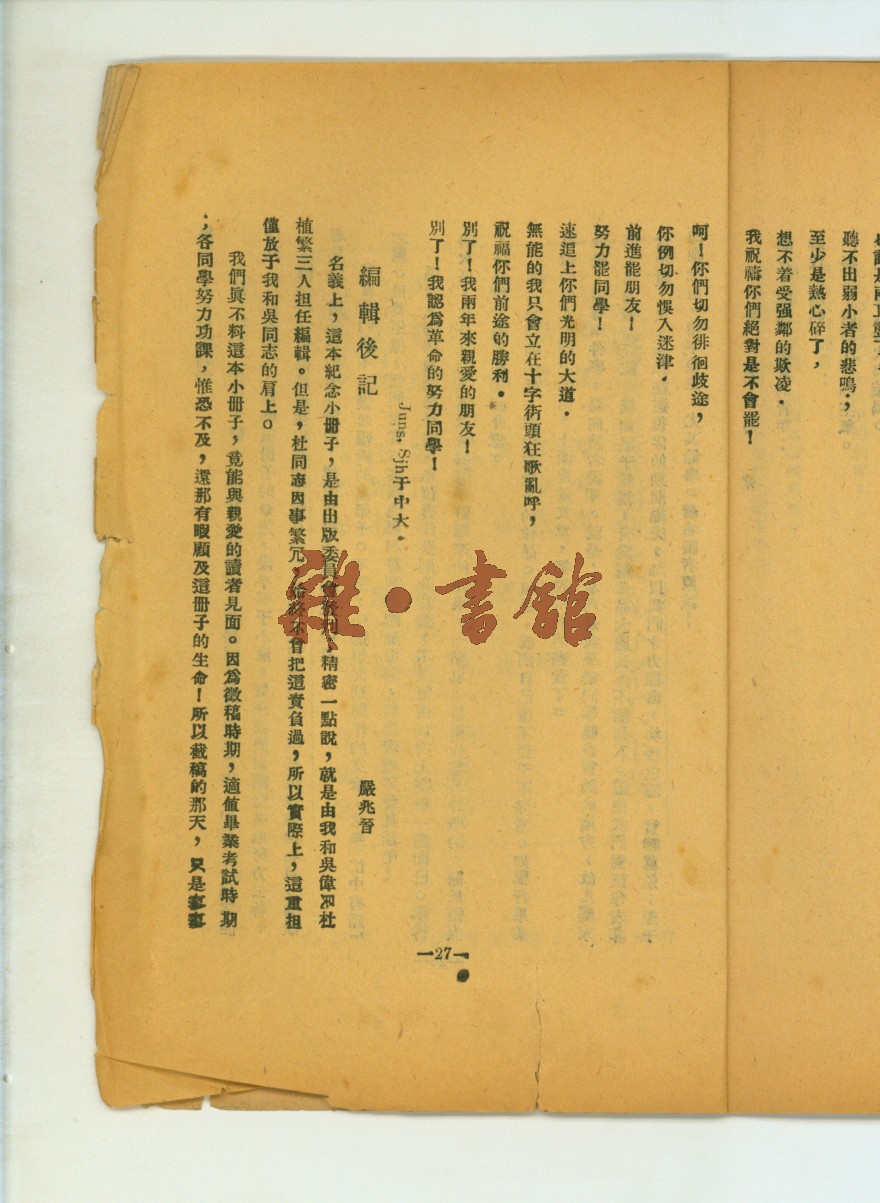 聽不出弱小者的悲鳴；
至少是熱心碎了，
想不着受强鄰的欺凌．
我祝禱你們絕對是不會罷！
呵！你們切勿徘徊歧途，
你例切勿悞入迷津．
前進罷朋友！
努力罷同學！
速追上你們光明的大道．
無能的我只會立在十字街頭狂歌亂呼，
祝福你們前途的勝利．
別了！我兩年來親愛的朋友！
別了！我認爲革命的努力同學！
Juns, Sjh于中大．
編輯後記
嚴兆晉
名義上，這本紀念小冊子，是由出版委員會 精密一點說，就是由我和吳偉 杜
植繁三人担任編輯。但是，杜同志因事繁冗， 不會把這責負過，所以實際上，這重担
僅放于我和吳同志的肩上。
我們眞不料這本小冊子，竟能與親愛的讀者見面。因爲徵稿時期，適值畢業考試時期
；各同學努力功課，惟恐不及，還那有暇顧及這冊子的生命！所以截稿的那天，只是寥寥
—27—
雜·書館